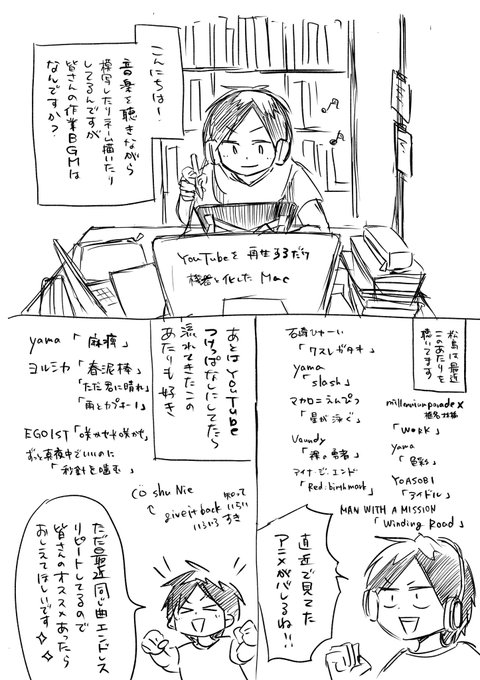 こんにちは!
音楽を聴きながら
模写したりネーム描いたり
してるんですが
皆さんの作業BGMは
なんですか?
YouTubeを再生するだけ
機器と化したMac
松島は最近
このあたりを
聴いてます
millennium parade ×
椎名林檎
「WORK」
yama
「色彩」
YOASOBI
「アイドル」
MAN WITH A MISSION
「Winding Road」
石崎ひゅーい
「ワスレガタキ」
yama
「slash」
マカロニえんぴつ
「星が泳ぐ」
Vaundy
「裸の勇者」
アイナ・ジ・エンド
「Red:birthmark」
直近で見てた
アニメがバレるね!!
あとはYouTube
つけっぱなしにしてたら
流れてきたこの
あたりも好き
yama「麻痺」
ヨルシカ「春泥棒」
「ただ君に晴れ」
「雨とカプチーノ」
EGOIST「咲かせや咲かせ」
ずっと真夜中でいいのに
「秒針を噛む」
Cö shu Nie
give it back
ただ最近同じ曲エンドレス
リピートしてるので
皆さんのオススメあったら
おしえてほしいです